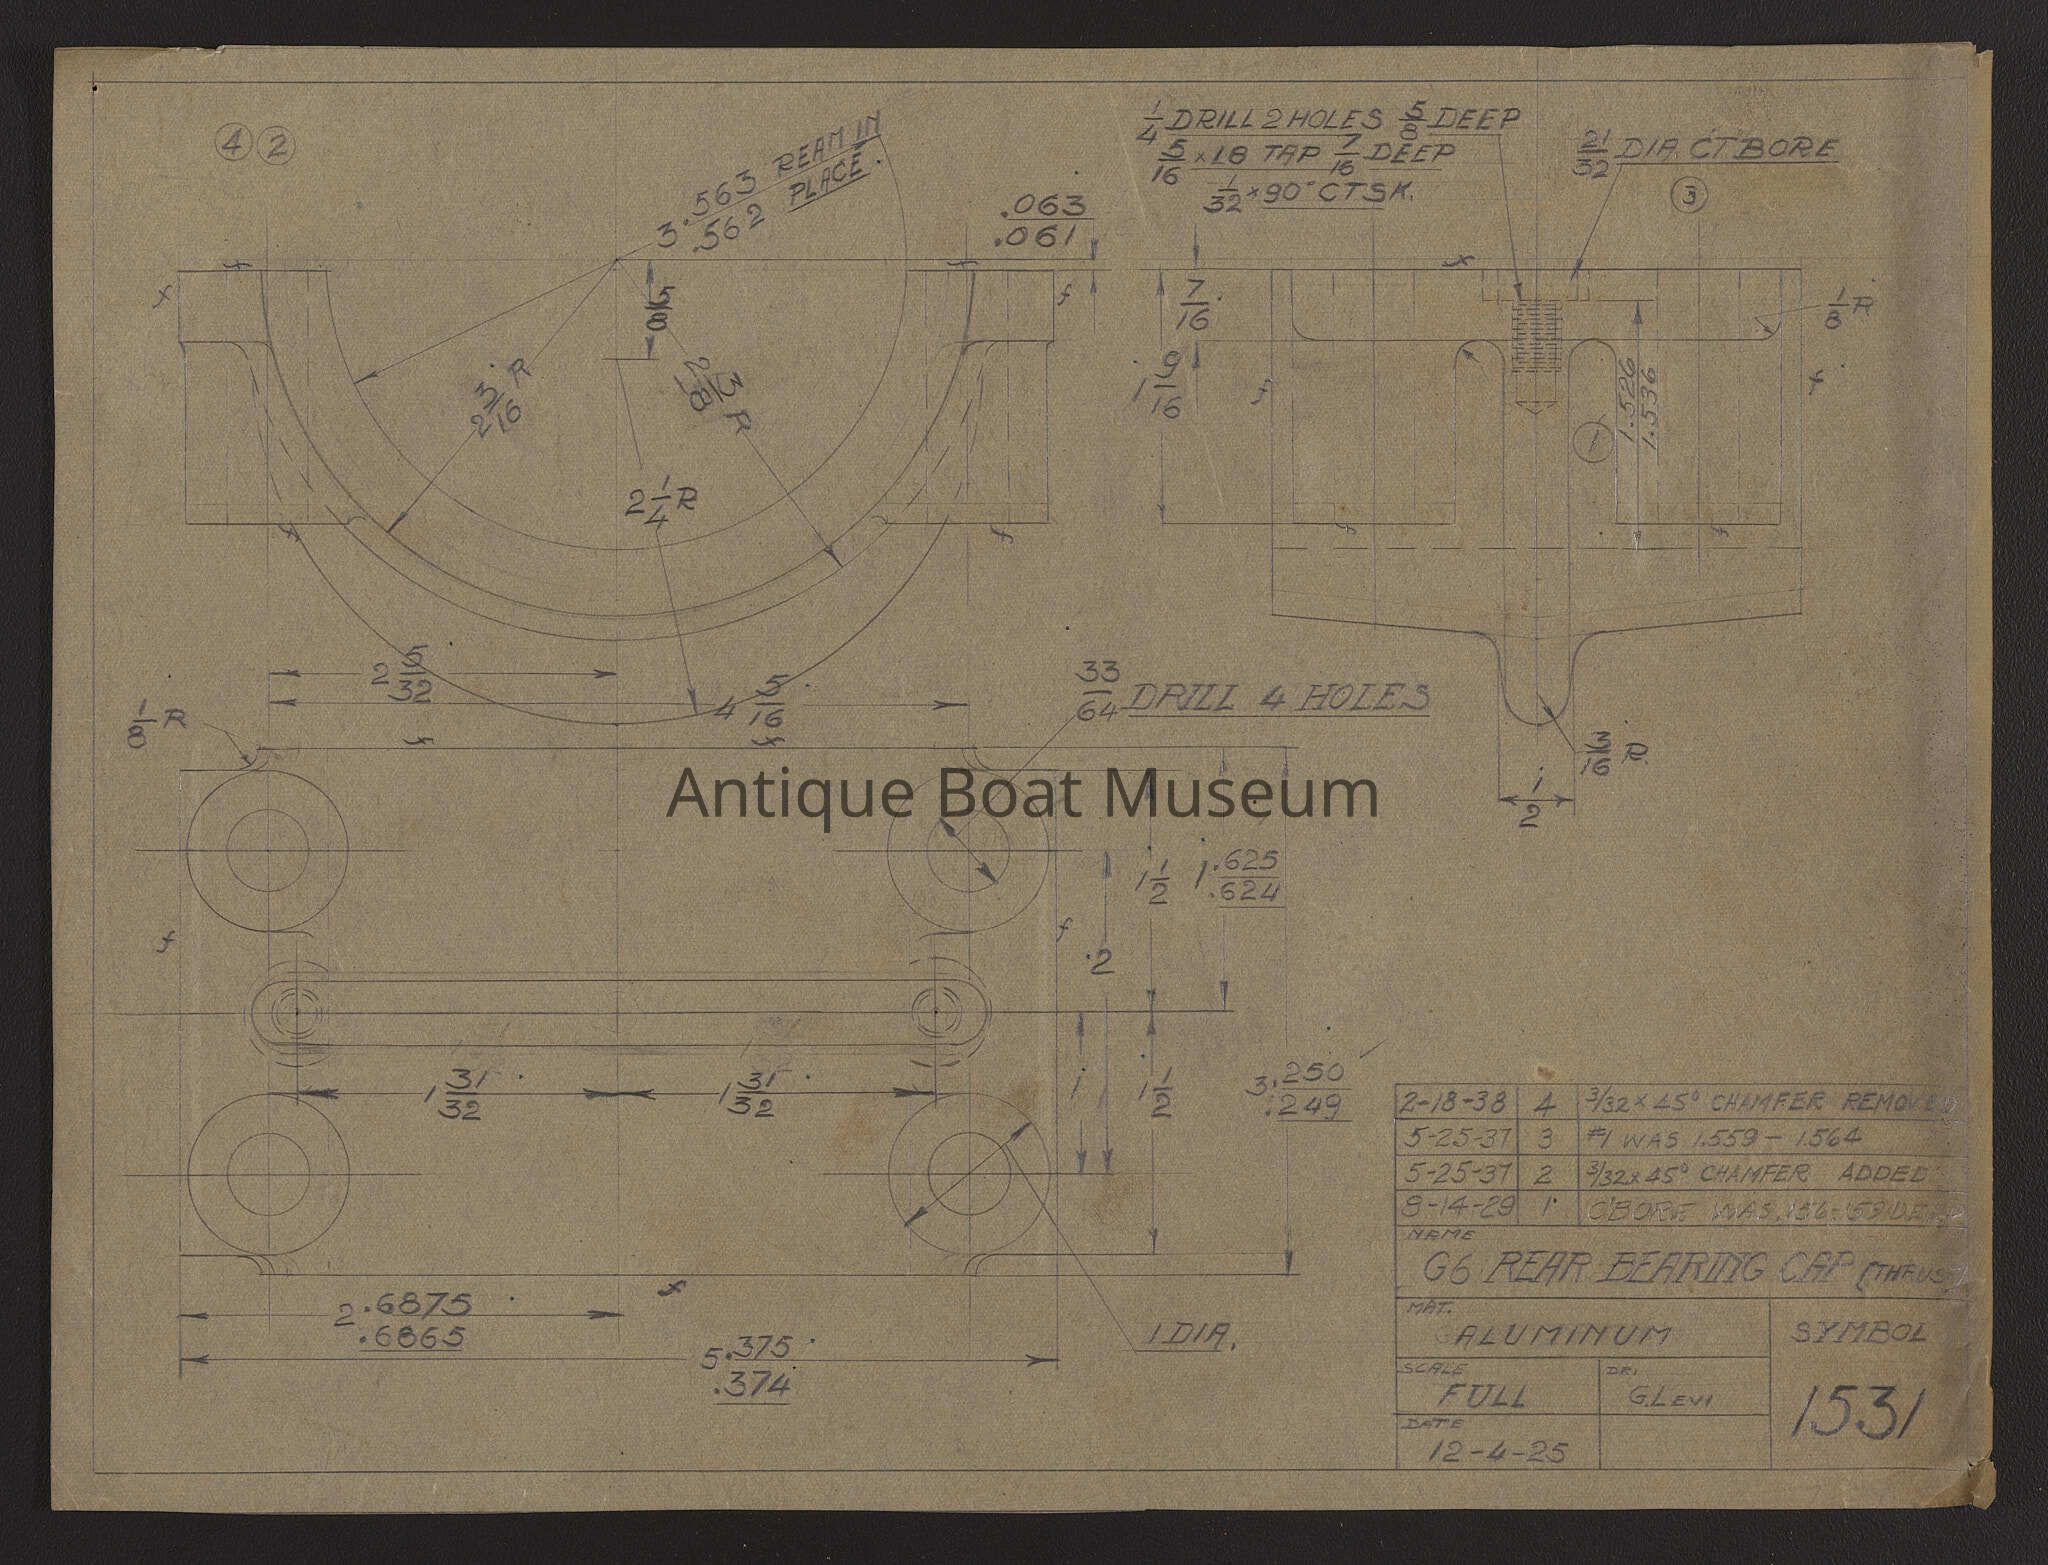 4 2
3.563 REAM IN
.562 PLACE.
.063
.061
1/4 DRILL 2 HOLES 5/8 DEEP
5/16 x 18 TAP 7/16 DEEP
1/32 x 90° CTSK.
21/32 DIA. C'T'BORE
3
f f f f f f f f
5/8
2 3/16 R
2 3/8 R
2 1/4 R
7/16
1 9/16
1/8 R
1.526
1.536
1
f f f f f
2 5/32
4 5/16
1/8 R
33/64 DRILL 4 HOLES
3/16 R.
1/2
Antique Boat Museum
1 1/2
1.625
.624
2
1 31/32
1 31/32
1
1 1/2
3.250
.249
2.6875
.6865
5.375
.374
1 DIA.
2-18-38 4 3/32 x 45° CHAMFER REMOVED
5-25-37 3 #1 WAS 1.559 - 1.564
5-25-37 2 3/32 x 45° CHAMFER ADDED
8-14-29 1 C'BORE WAS DEEP
NAME
G6 REAR BEARING CAP (THRUST)
MAT.
ALUMINUM
SYMBOL
SCALE
FULL
DR.
G. LEVI
1531
DATE
12-4-25